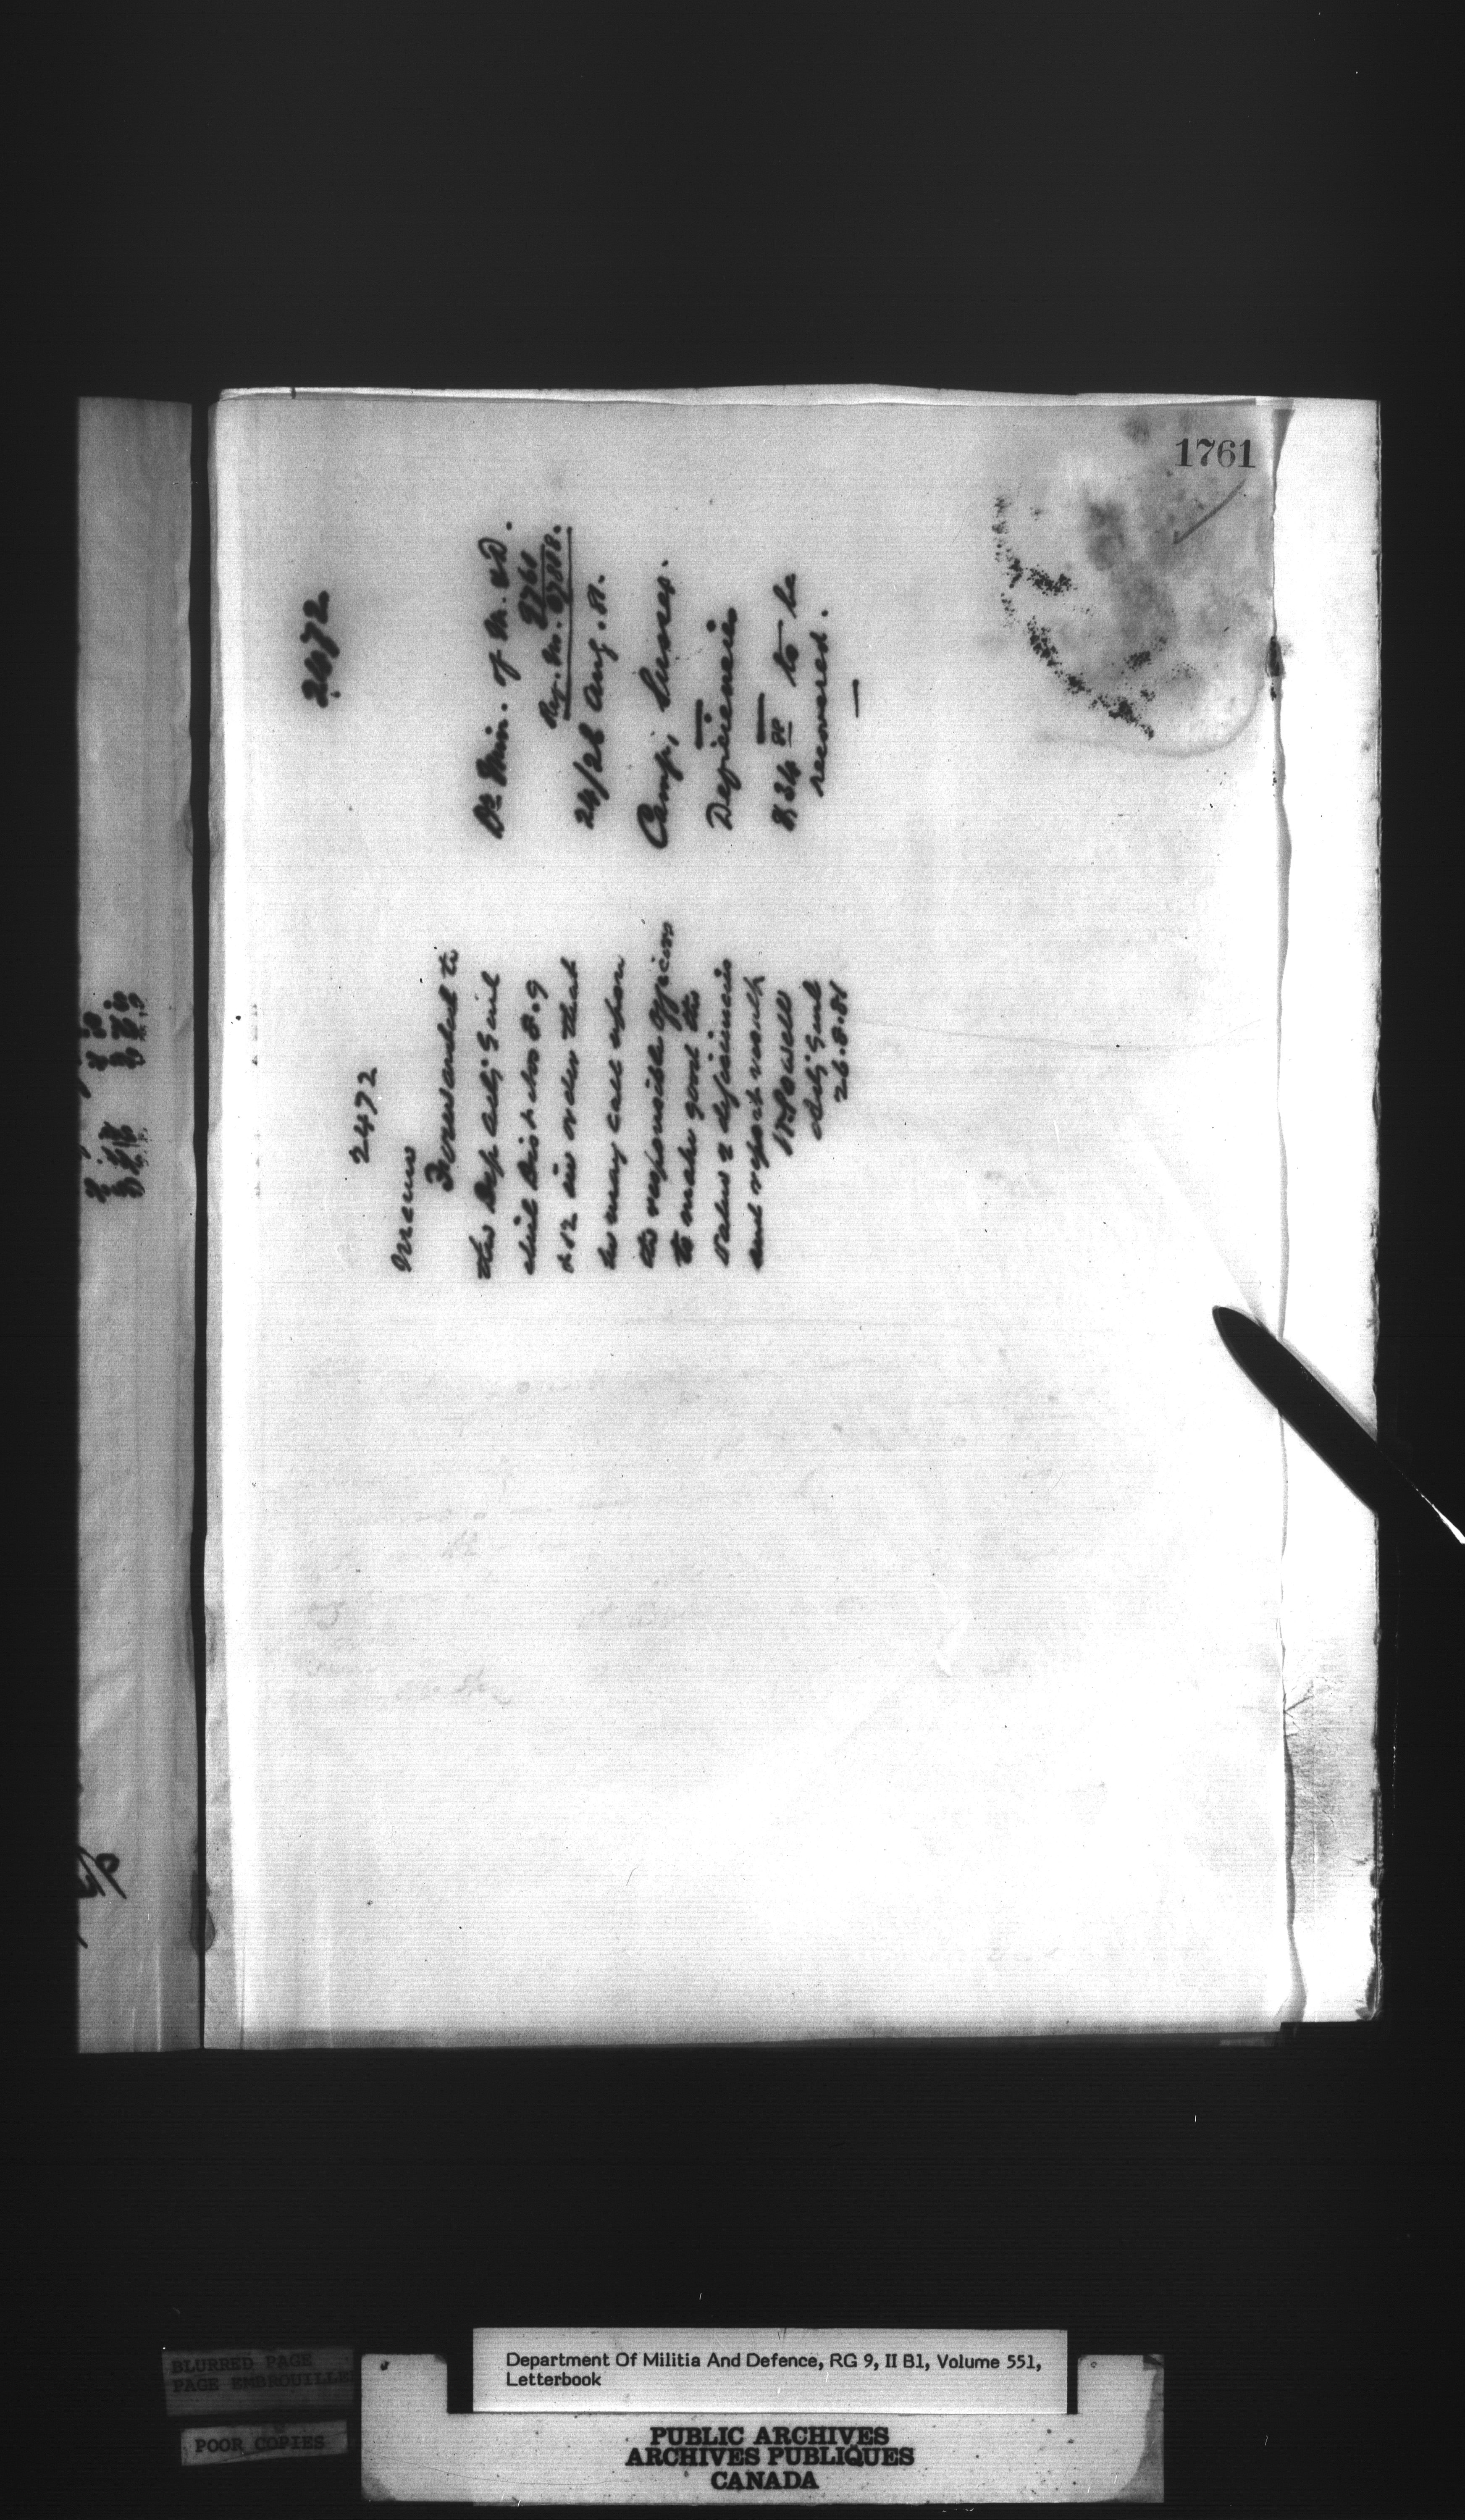 1761
2472
Dr Min. of M. & D.
24/26 Aug. 81.
Camp, Sussex.
Deficiencies
8.34 to be
recovered.
2472
Memo
Forwarded to
the Dep Adjt Genl
Mil Dist Nos 8. 9
& 12 in order that
he may call upon
the responsible officers
to make good the
value of deficiencies
and report result
W Powell
Adjt Genl
26.8.81
BLURRED PAGE
PAGE EMBROUILLEE
POOR COPIES
Department Of Militia And Defence, RG 9, II B1, Volume 551,
Letterbook
PUBLIC ARCHIVES
ARCHIVES PUBLIQUES
CANADA